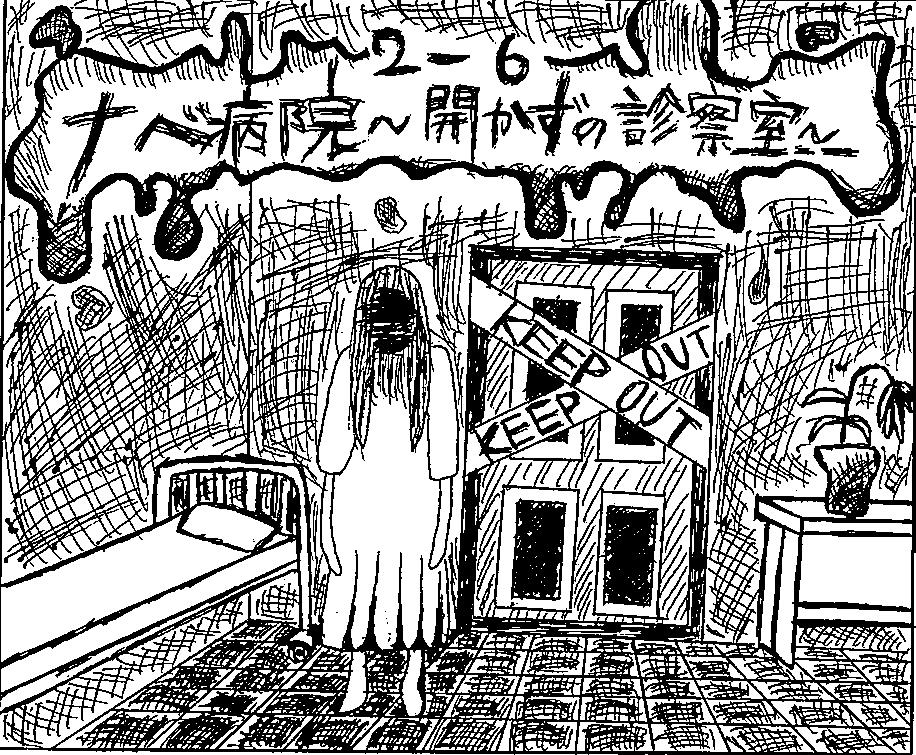 2-6
ナベ病院～開かずの診察室～
KEEP OUT
KEEP OUT